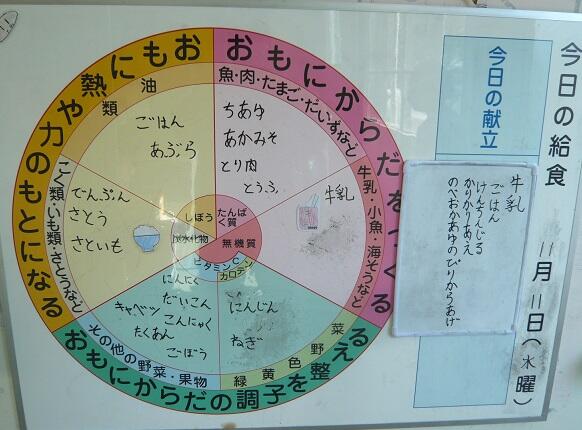 今日の給食
11月11日(水曜)
今日の献立
牛乳
ごはん
けんちんじる
かりかりあえ
のべおかあゆのぴりからあげ
おもにからだをつくる
魚・肉・たまご・だいずなど
ちあゆ
あかみそ
とり肉
とうふ
牛乳・小魚・海そうなど
牛乳
おもに熱や力のもとになる
油類
ごはん
あぶら
こく類・いも類・さとうなど
でんぷん
さとう
さといも
しぼう
たんぱく質
炭水化物
無機質
ビタミンC
カロテン
おもにからだの調子を整える
その他の野菜・果物
にんにく
だいこん
キャベツ
こんにゃく
たくあん
ごぼう
緑黄色野菜
にんじん
ねぎ